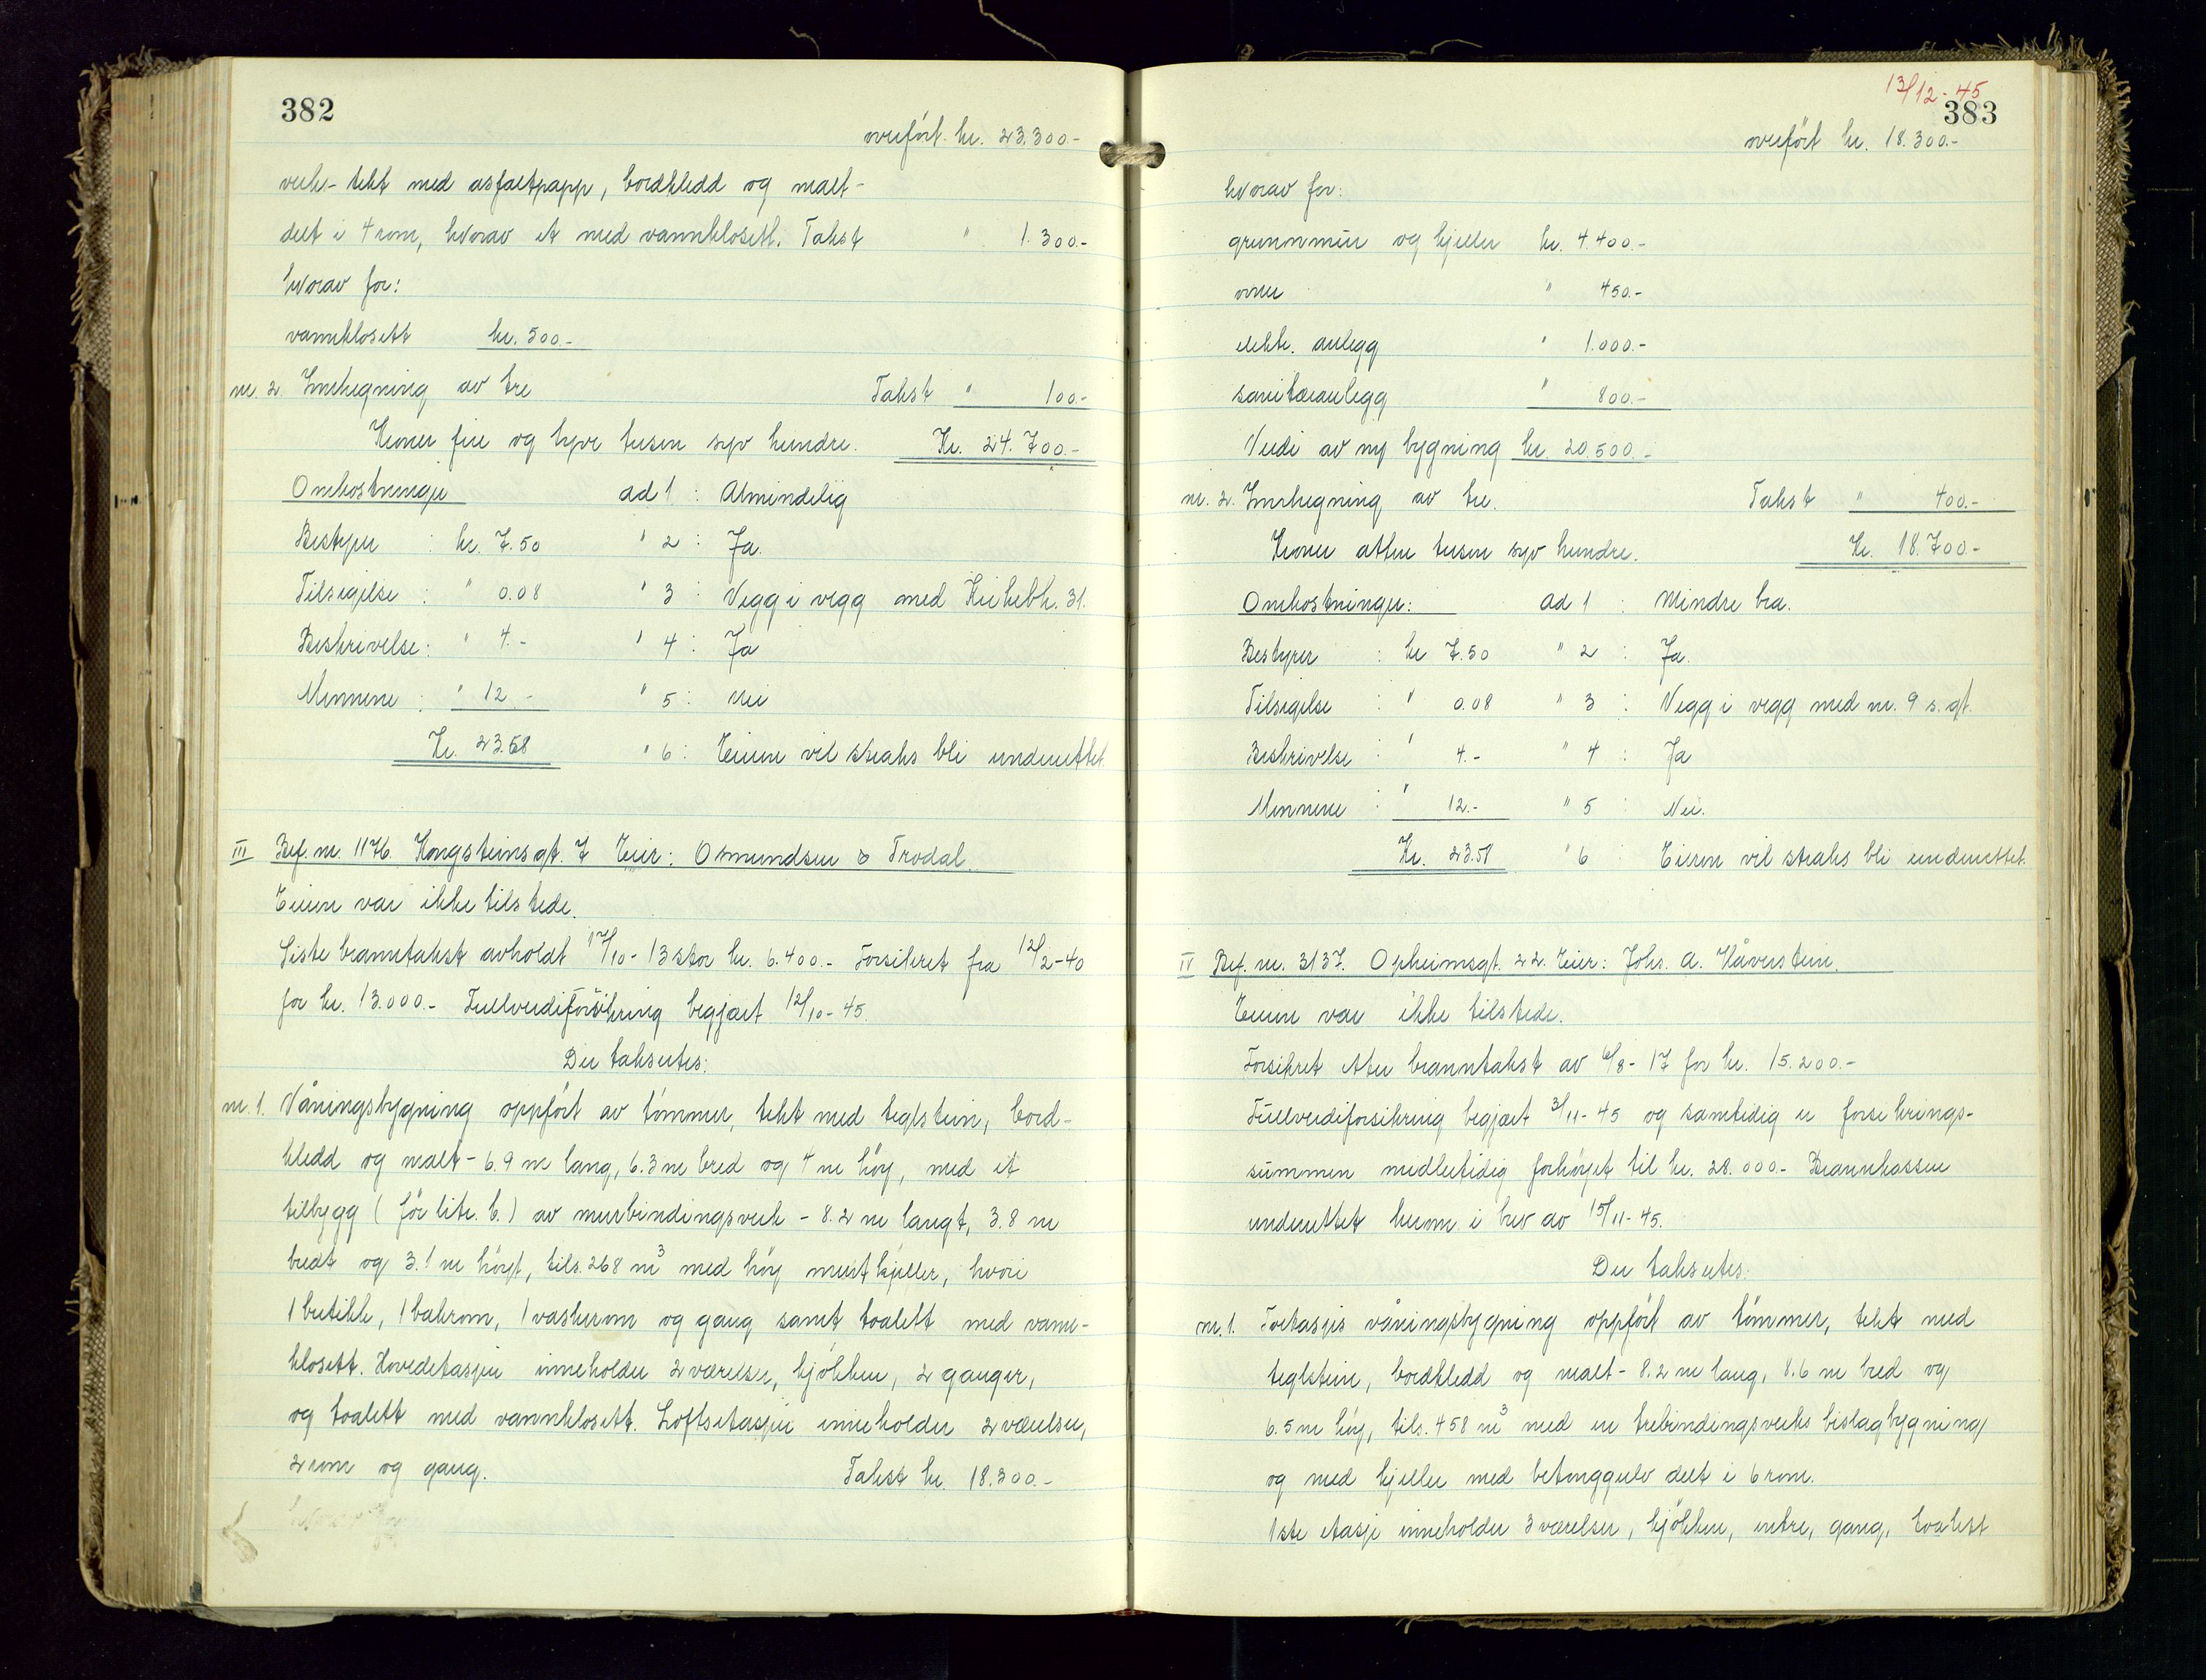 382
overført kr. 23.300.-
verk- tekt med asfaltpapp, bordkledd og malt-
delt i 4 rom, hvorav et med vannklosett. Takst " 1.300.-
hvorav for:
vannklosett kr. 500.-
nr. 2. Innhegning av tre Takst " 100.-
Kroner fire og tyve tusen syv hundre. Kr. 24.700.-
Omkostninger ad 1 : Almindelig
Bestyrer : kr. 7.50 " 2 : Ja.
Tilsigelse : " 0.08 " 3 : Vegg i vegg med Kirkebk. 31.
Beskrivelse : " 4.- " 4 : Ja
Mennene : " 12.- " 5 : Nei
Kr. 23.58 " 6 : Eieren vil straks bli underrettet.
III Bef. nr. 1176. Kongsteinsgt. 7 Eier: Osmundsen & Trodal.
Eieren var ikke tilstede.
Siste branntakst avholdt 17/10-13 stor kr. 6.400.- Forsikret fra 12/2-40
for kr. 13.000.- Fullverdiforsikring begjært 12/10-45.
Der takseres:
nr. 1. Våningsbygning oppført av tømmer, tekt med teglstein, bord-
kledd og malt- 6.9 m lang, 6.3 m bred og 4 m høy, med et
tilbygg (før litr. b.) av murbindingsverk - 8.2 m langt, 3.8 m
bredt og 3.1 m høyt, tils. 268 m³ med høy murt kjeller, hvori
1 butikk, 1 bakrom, 1 vaskerom og gang samt toalett med vann-
klosett. Hovedetasjen inneholder 2 værelser, kjøkken, 2 ganger,
og toalett med vannklosett. Loftsetasjen inneholder 2 værelser,
2 rom og gang. Takst kr. 18.300.-
13/12-45
383
overført kr. 18.300.-
hvorav for:
grunnmur og kjeller kr. 4.400.-
ovner " 450.-
elektr. anlegg " 1.000.-
sanitæranlegg " 800.-
Verdi av ny bygning kr. 20.500.-
nr. 2. Innhegning av tre. Takst " 400.-
Kroner atten tusen syv hundre. Kr. 18.700.-
Omkostninger: ad 1 : Mindre bra.
Bestyrer : kr 7.50 " 2 : Ja.
Tilsigelse : " 0.08 " 3 : Vegg i vegg med nr. 9 s. gt.
Beskrivelse : " 4.- " 4 : Ja
Mennene : " 12.- " 5 : Nei.
Kr. 23.58 " 6 Eieren vil straks bli underrettet.
IV Bef. nr. 3137. Opheimsgt. 22. Eier: Johs. A. Håverstein.
Eieren var ikke tilstede.
Forsikret etter branntakst av 6/8-17 for kr. 15.200.-
Fullverdiforsikring begjært 3/11-45 og samtidig er forsikrings-
summen midlertidig forhøyet til kr. 28.000.- Brannkassen
underrettet herom i brev av 15/11-45.
Der takseres:
nr. 1. Toetasjes våningsbygning oppført av tømmer, tekt med
teglstein, bordkledd og malt- 8.2 m lang, 8.6 m bred og
6.5 m høy, tils. 458 m³ med en trebindingsverks bislagbygning
og med kjeller med betonggulv delt i 6 rom.
1ste etasje inneholder 3 værelser, kjøkken, entre, gang, toalett